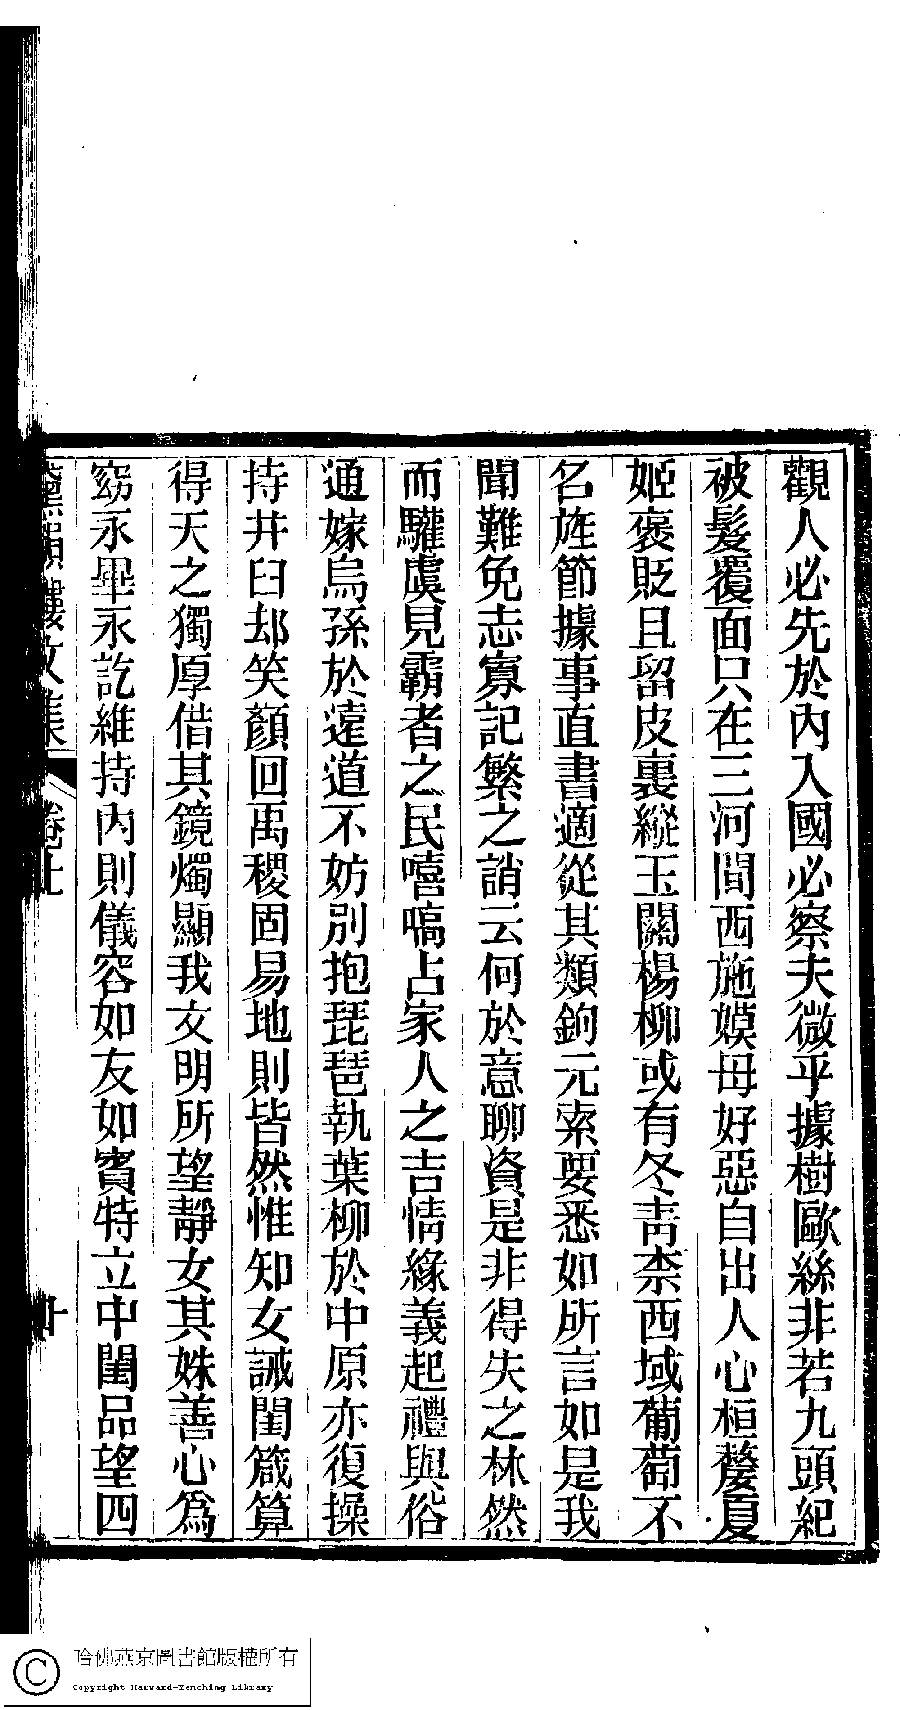 觀人必先於內入國必察夫微乎據樹歐絲非若九頭紀
被髮覆面只在三河間西施嫫母好惡自出人心桓嫠夏
姬褒貶且留皮裏縱玉關楊柳或有冬青柰西域葡萄不
名旌節據事直書適從其類鉤元索要悉如所言如是我
聞難免志寡記繁之誚云何於意聊資是非得失之林然
而驩虞見霸者之民嘻嗃占家人之吉情緣義起禮與俗
通嫁烏孫於遠道不妨別抱琵琶執葉柳於中原亦復操
持井臼却笑顏回禹稷固易地則皆然惟知女誡閨箴算
得天之獨厚借其鏡燭顯我文明所望靜女其姝善心爲
窈永畢永訖維持內則儀容如友如賓特立中閨品望四
黛韻樓文集 卷上 十
哈佛燕京圖書館版權所有
Copyright Harvard-Yenching Library